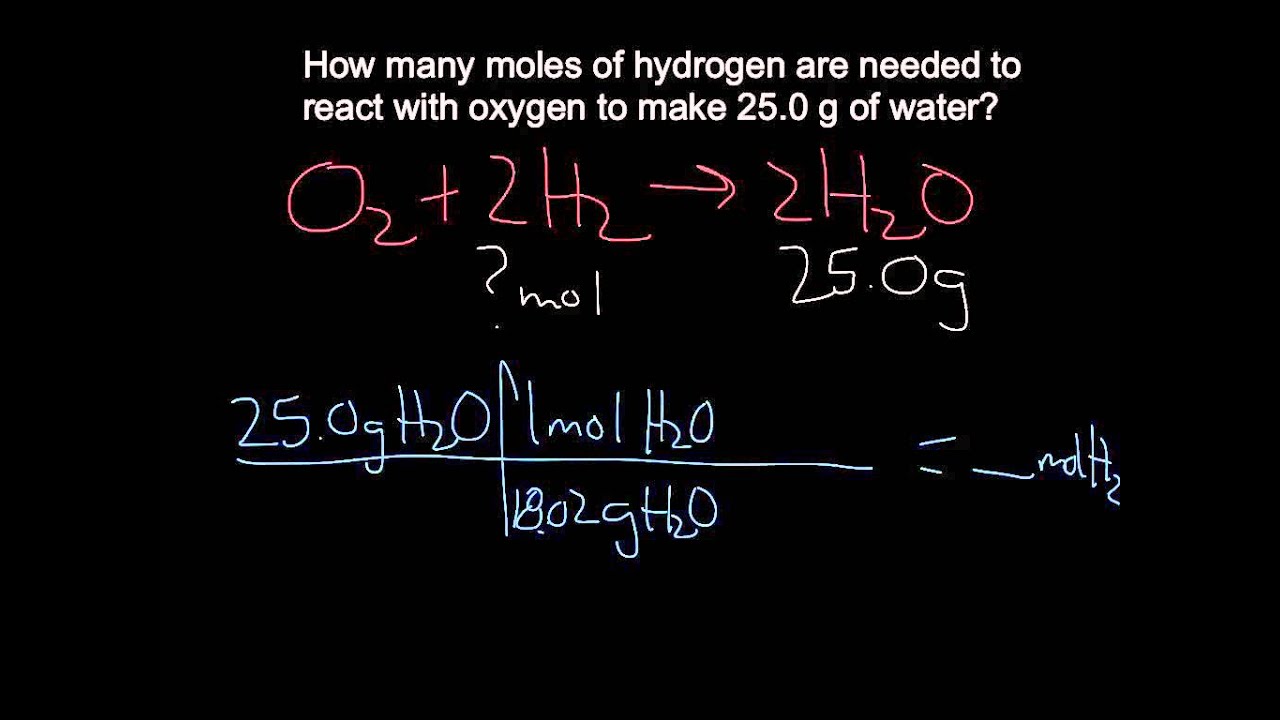 How many moles of hydrogen are needed to
react with oxygen to make 25.0 g of water?
O₂ + 2H₂ → 2H₂O
? mol 25.0g
25.0g H₂O 1 mol H₂O
18.02 g H₂O
= __ mol H₂